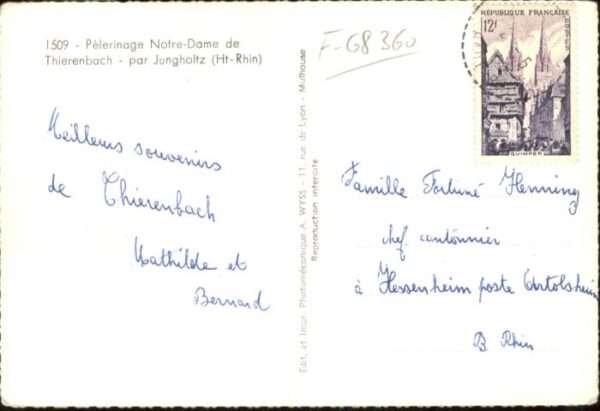 1509 - Pèlerinage Notre-Dame de
Thierenbach - par Jungholtz (Ht-Rhin)
F-68 360
Meilleurs souvenirs
de Thierenbach
Mathilde et
Bernard
Edit. et Impr. Photomécanique A. WYSS - 11, rue de Lyon - Mulhouse
Reproduction interdite
RÉPUBLIQUE FRANÇAISE
12f
POSTES
QUIMPER
Famille Fortuné Henning
chef cantonnier
à Hessenheim poste Artolsheim
B. Rhin